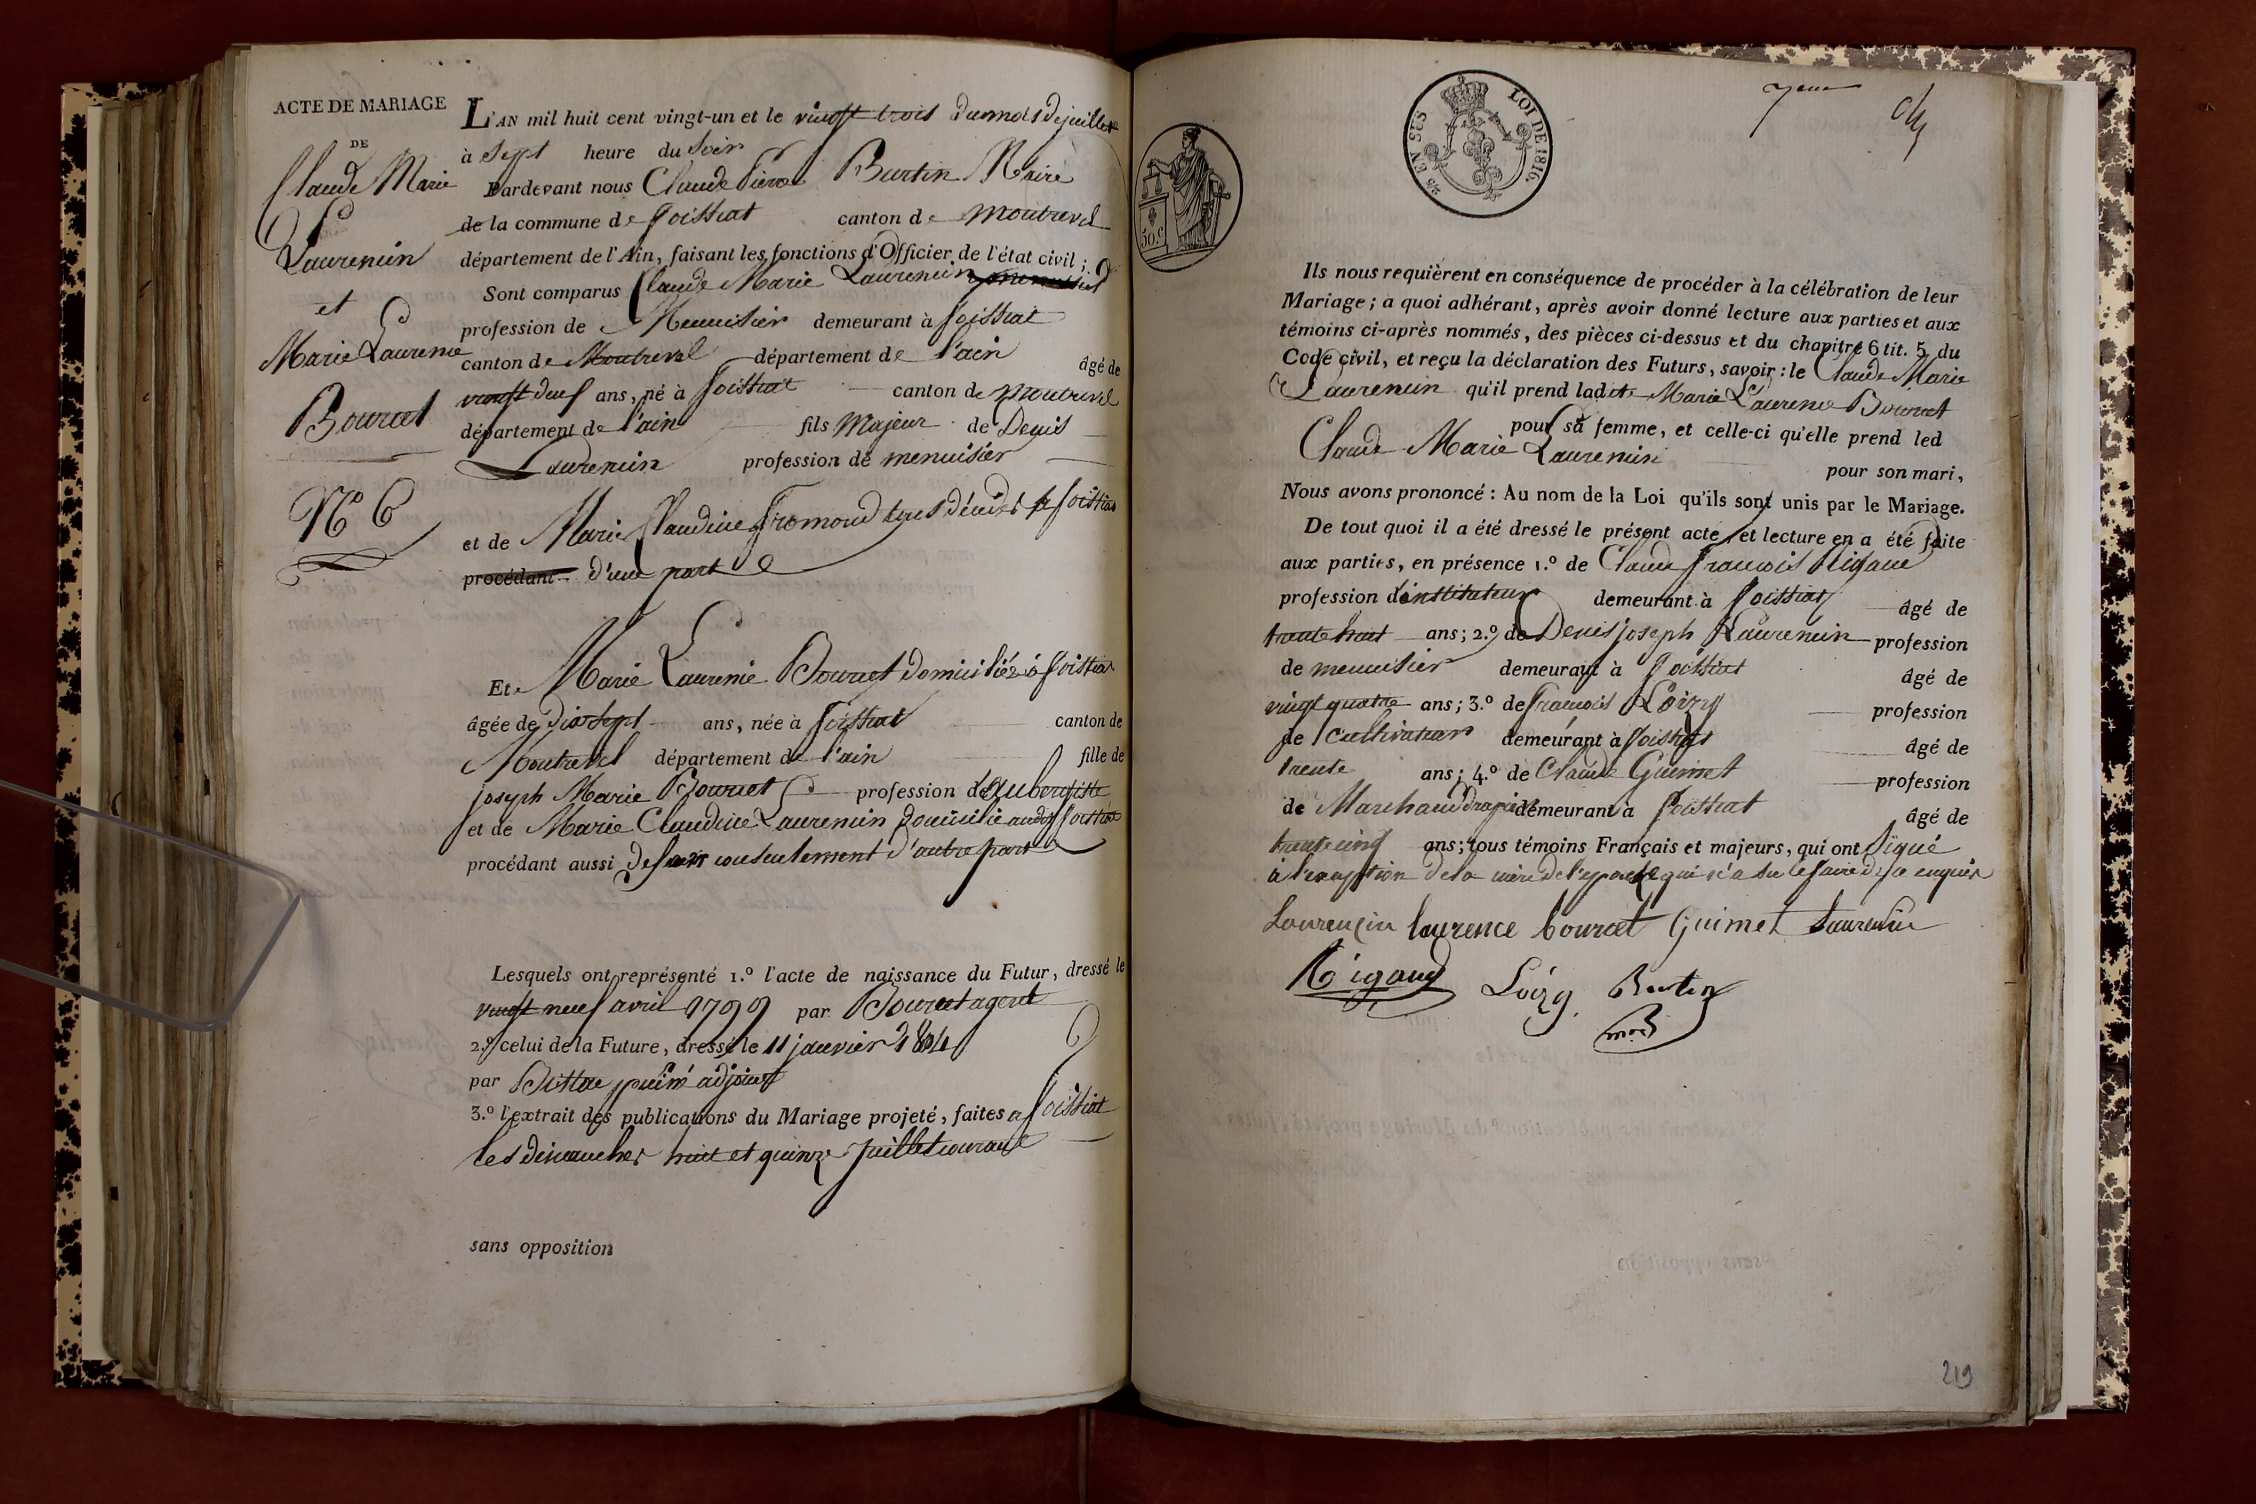 ACTE DE MARIAGE
DE
Claude Marie
Laurencin
et
Marie Laurence
Bourcet
N° 6
L'AN mil huit cent vingt-un et le vingt trois du mois de juillet
à sept heure du soir
Pardevant nous Claude Pierre Burtin Maire
de la commune de foissiat canton de montrevel
département de l'Ain, faisant les fonctions d'Officier de l'état civil ;
Sont comparus Claude Marie Laurencin
profession de Menuisier demeurant à foissiat
canton de Montrevel département de l'ain âgé de
vingt deux ans, né à foissiat canton de montrevel
département de l'ain fils Majeur de Denis
Laurencin profession de menuisier
et de Marie Claudine fromond tous décédés à foissiat
procédant d'une part
Et Marie Laurence Bourcet domiciliée à foissiat
âgée de dix sept ans, née à foissiat canton de
Montrevel département de l'ain fille de
joseph Marie Bourcet profession d'aubergiste
et de Marie Claudine Laurencin domicilié audit foissiat
procédant aussi de leur consentement d'autre part
Lesquels ont représenté 1.° l'acte de naissance du Futur, dressé le
vingt neuf avril 1799 par Bourcet agent
2.° celui de la Future, dressé le 11 janvier 1804
par adjoint
3.° l'extrait des publications du Mariage projeté, faites a foissiat
les dimanches huit et quinze juillet courant
sans opposition
EN SUS
LOI DE 1816.
50 c.
7eme
Ils nous requièrent en conséquence de procéder à la célébration de leur
Mariage ; a quoi adhérant, après avoir donné lecture aux parties et aux
témoins ci-après nommés, des pièces ci-dessus et du chapitre 6 tit. 5 du
Code civil, et reçu la déclaration des Futurs, savoir : le Claude Marie
Laurencin qu'il prend ladite Marie Laurence Bourcet
pour sa femme, et celle-ci qu'elle prend led
Claude Marie Laurencin
pour son mari,
Nous avons prononcé : Au nom de la Loi qu'ils sont unis par le Mariage.
De tout quoi il a été dressé le présent acte et lecture en a été faite
aux parties, en présence 1.° de Claude françois Rigaud
profession d'instituteur demeurant à foissiat âgé de
trente huit ans ; 2.° de Denis joseph Laurencin profession
de menuisier demeurant à foissiat âgé de
vingt quatre ans ; 3.° de françois Loizy profession
de Cultivateur demeurant à foissiat âgé de
trente ans ; 4.° de Claude Guimet profession
de Marchand drapier demeurant à foissiat âgé de
trente cinq ans ; tous témoins Français et majeurs, qui ont signé
à l'exception de la mère de l'epouse qui n'a su le faire de ce enquise
Laurencin laurence bourcet Guimet Laurencin
Rigaud Loizy Burtin
219